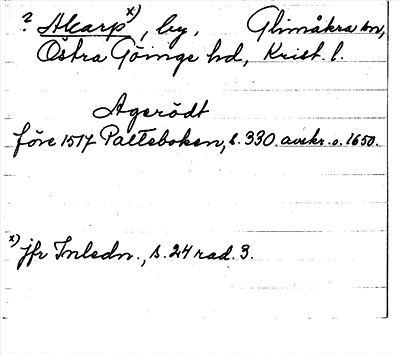 ? Akarp x), by, Glimåkra sn,
Östra Göinge hd, Krist. l.
Agerödt
före 1517 Palteboken, s. 330. avskr. o. 1650.
x) jfr Inledn., s. 24 rad. 3.